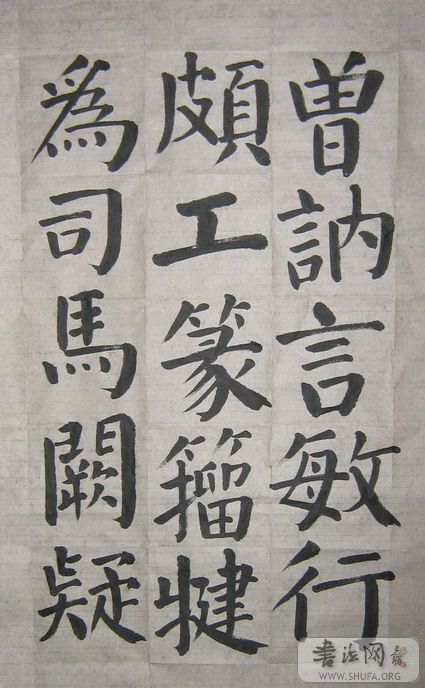 曾訥言敏行
頗工篆籕犍
爲司馬闕疑
書法网
WWW.SHUFA.ORG